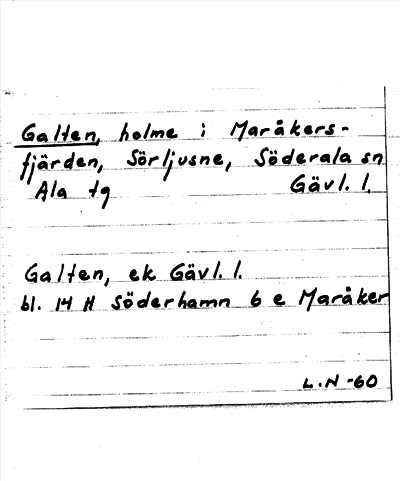 Galten, holme i Maråkers-
fjärden, Sörljusne, Söderala sn
Ala tg Gävl. l.
Galten, ek Gävl. l.
bl. 14 H Söderhamn 6 e Maråker
L.N -60